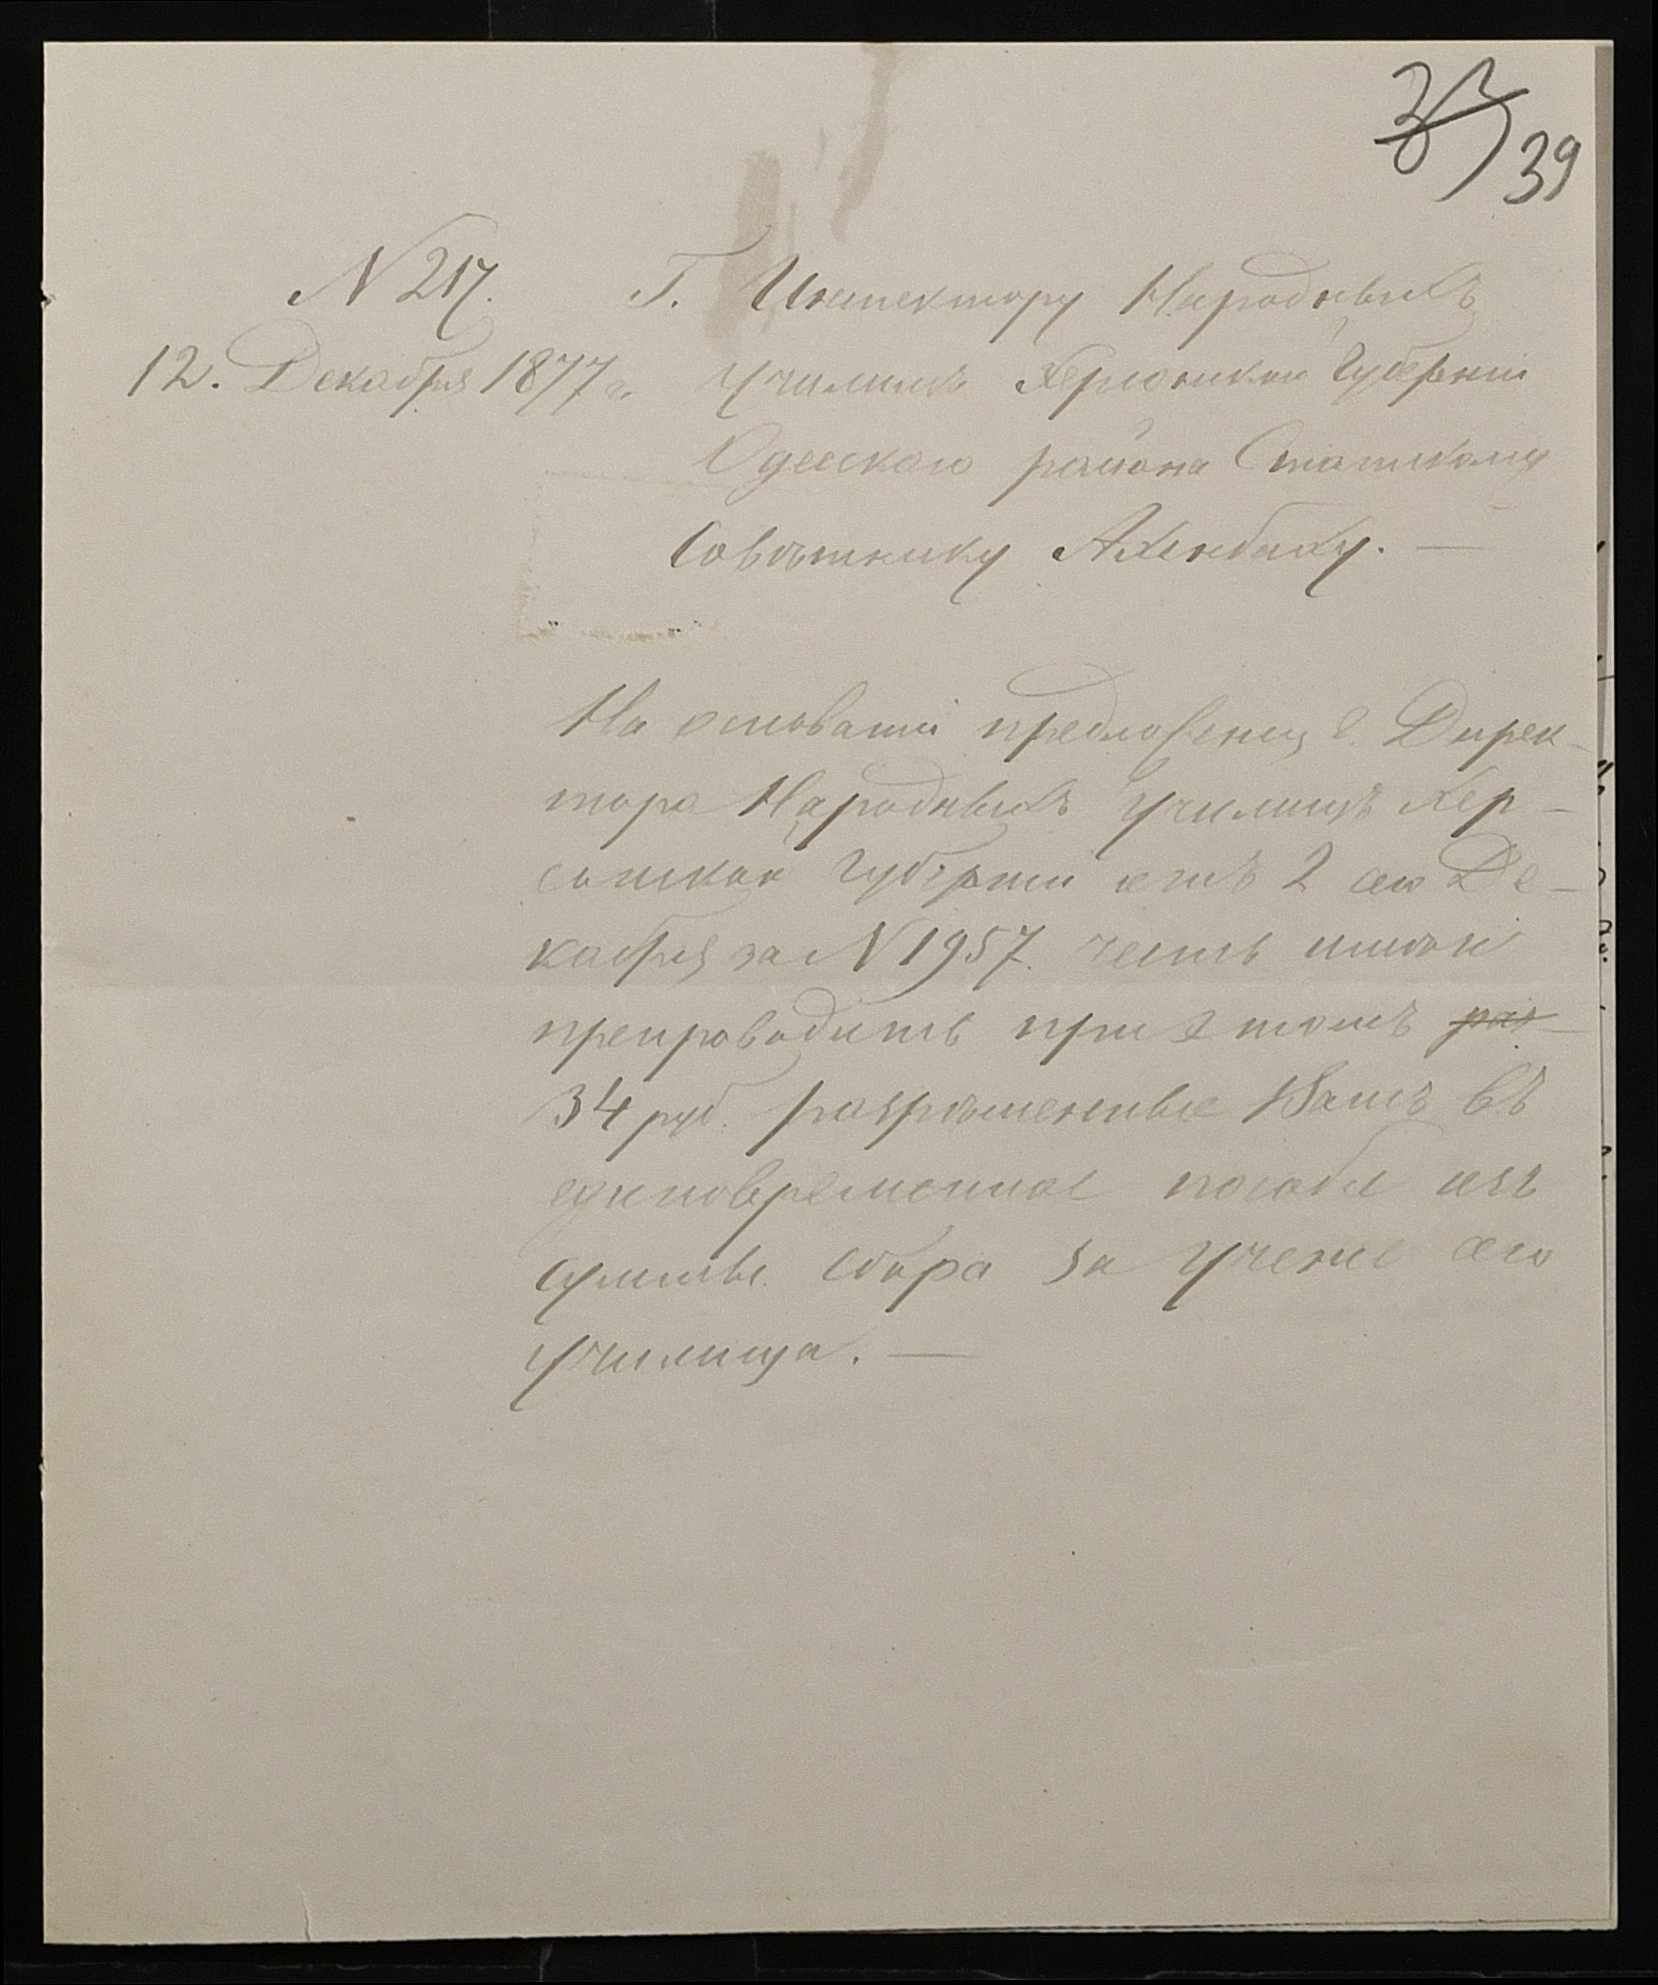 39
N 217.
12. Декабря 1877 г.
Г. Инспектору Народныхъ
Училищъ Херсонской Губерніи
Одесскаго района Статскому
Совѣтнику Ахенбаху. —
На основаніи предложенія Г. Дирек-
тора Народныхъ Училищъ Хер-
сонской Губерніи отъ 2 сего Де-
кабря за N 1957. честь имѣю
препроводить при этомъ раз
34 руб. разрѣшенные Вамъ въ
единовременное пособіе изъ
суммы сбора за ученіе сего
училища. —